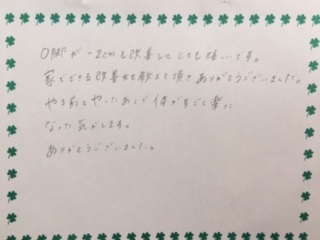 O脚が-2cmも改善しとても嬉しいです。
家でできる改善方を教えて頂きありがとうございました。
やる前とやったあとで体がすごく楽に
なった気がします。
ありがとうございました。